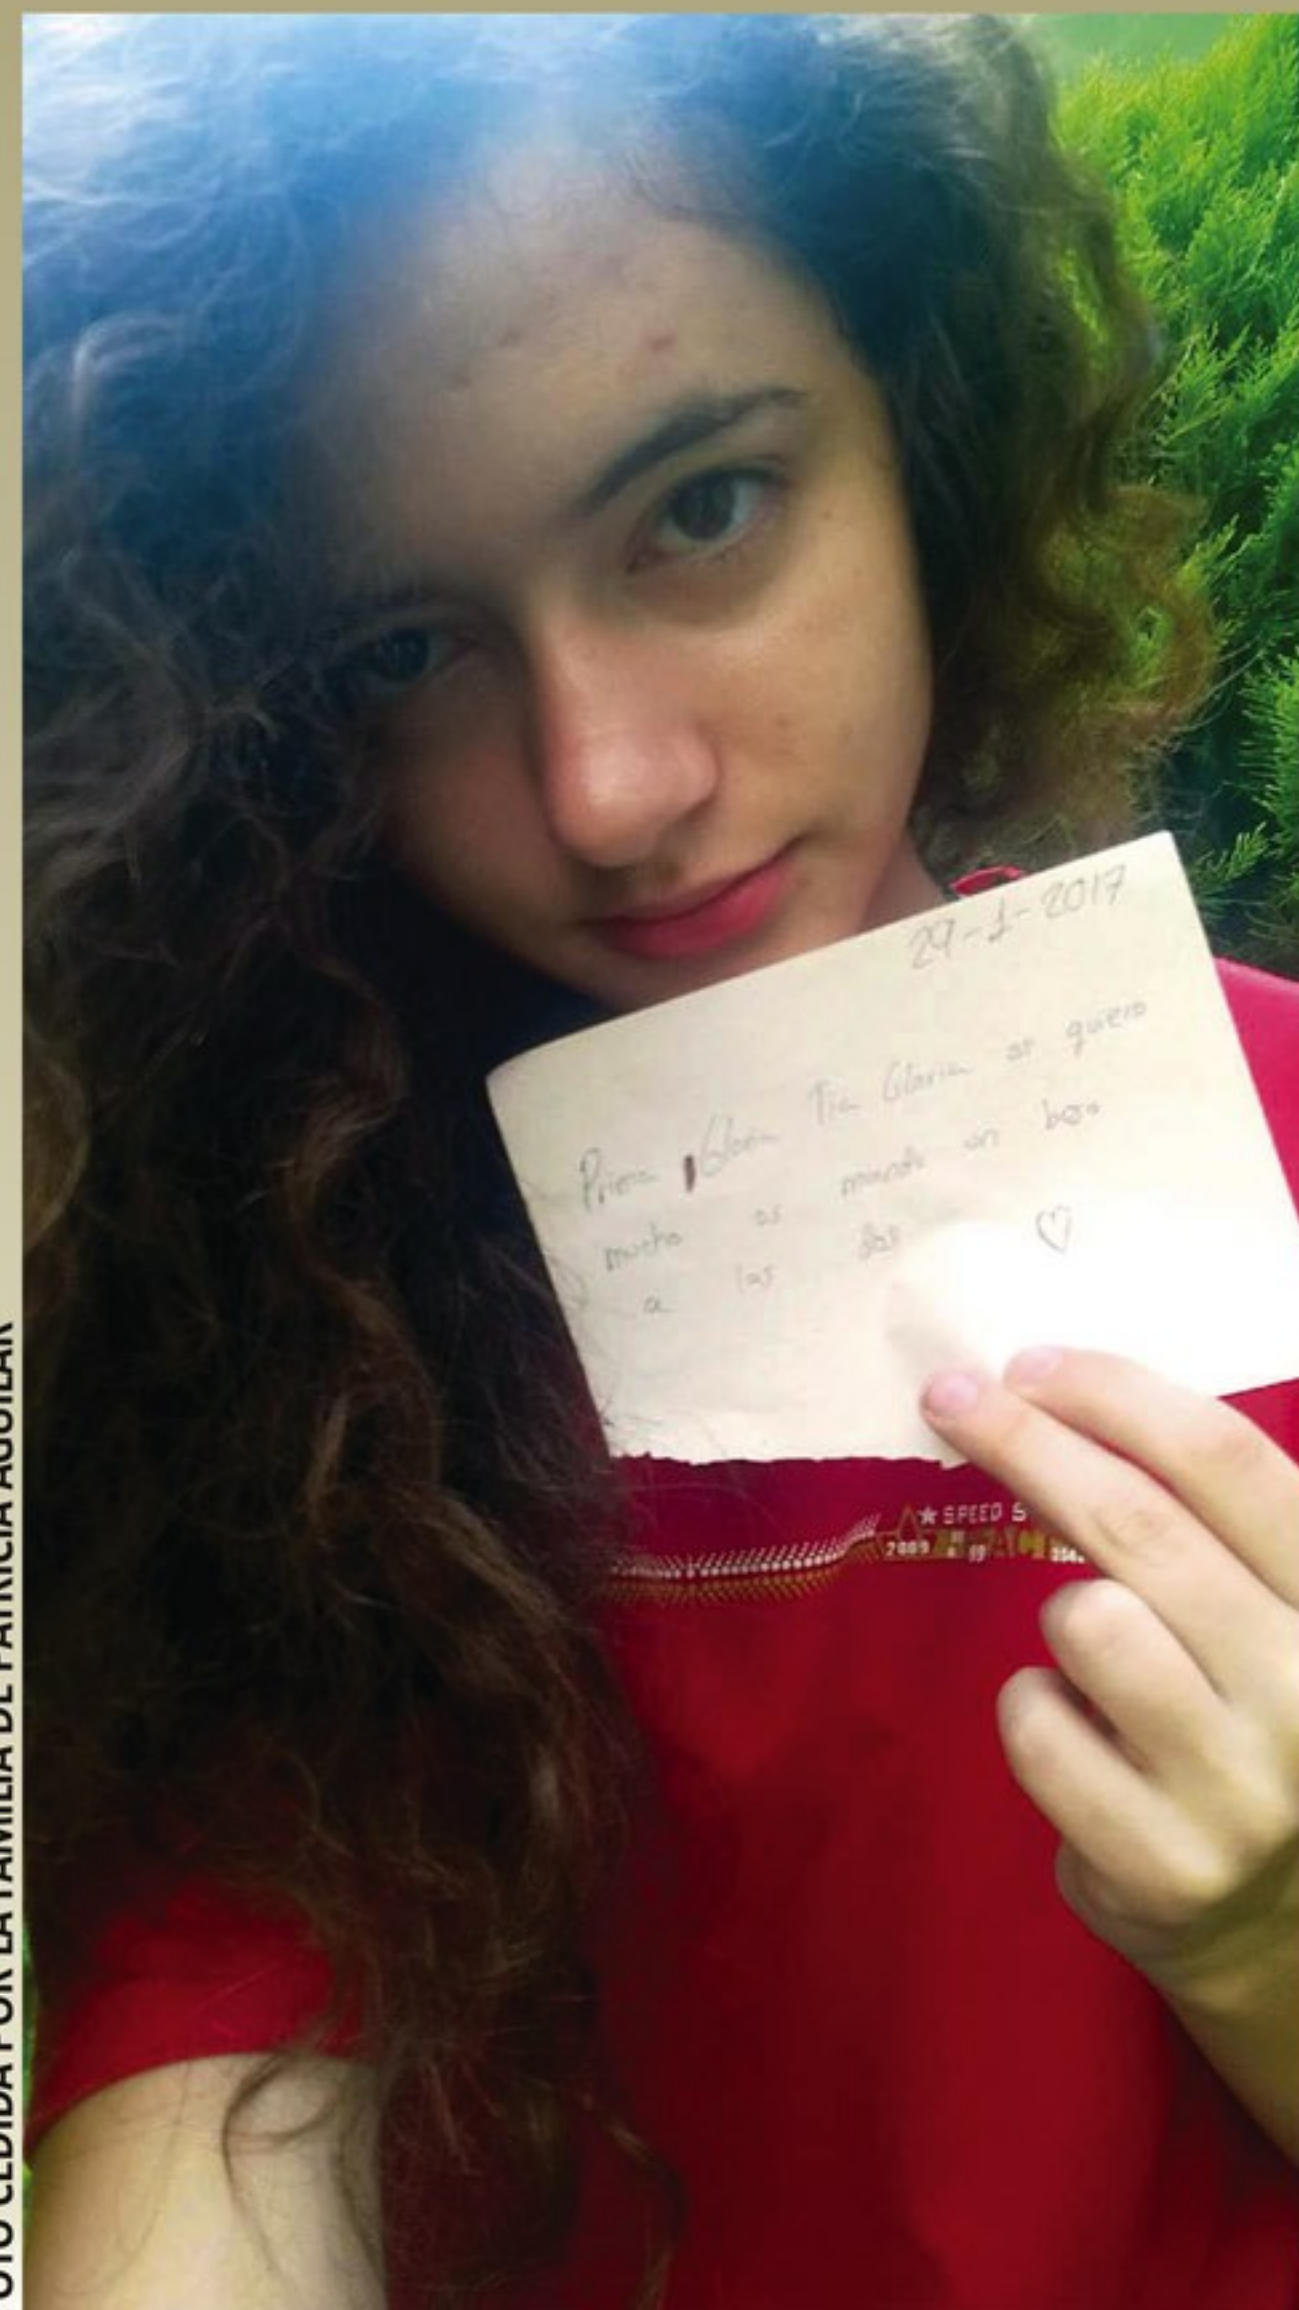 FOTO CEDIDA POR LA FAMILIA DE PATRICIA AGUILAR
29-1-2017
Prima Gloria Tia Gloria os quiero
mucho os mando un beso
a las dos ♡
★ SPEED S
2009